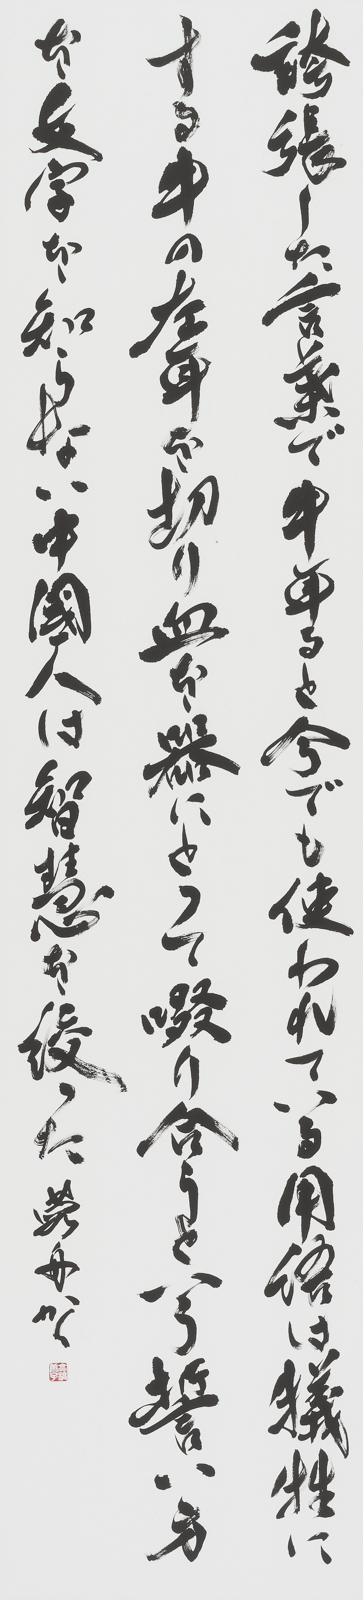 誇張した言葉で牛耳ると今でも使われている用語は犠牲に
する牛の左耳を切り血を器にとって啜り合うと云う誓い方
を文字を知らない中國人は智慧を絞った